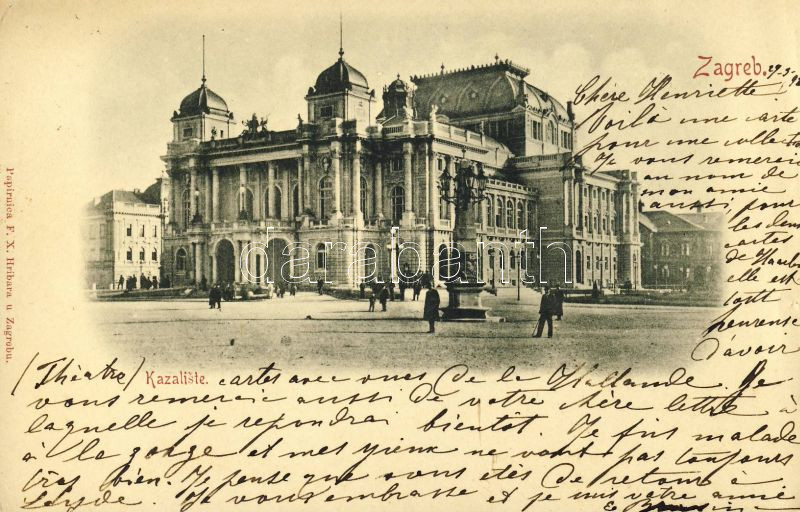 Zagreb. 27.3.98
Chère Henriette.
Voilà une carte
pour une collection
Je vous remercie
au nom de
mon amie
aussi pour
les deux
cartes
de
elle est
tout
heureuse
d'avoir
Papirnica F. X. Hribara u Zagrebu.
darabanth
(Théatre) Kazalište. cartes avec vues de de la Hollande. Je
vous remercie aussi de votre chère lettre à
laquelle je repondrai bientot. Je fus malade
à la gorge et mes yieux ne vont pas toujours
très bien. Je pense que vous etes de retour à
Je vous embrasse et je suis votre amie